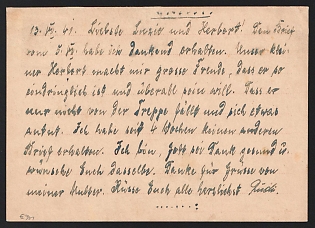 13. VI. 41. Liebste Luzie und Herbert. Den Brief
vom 5. VI. habe ich dankend erhalten. Unser klei-
ner Herbert macht mir grosse Freude, dass er so
eindringlich ist und überall sein will. Dass er
nur nicht von der Treppe fällt und sich etwas
antut. Ich habe seit 4 Wochen keinen anderen
Brief erhalten. Ich bin, Gott sei Dank gesund u.
wünsche Euch dasselbe. Danke für Grüsse von
meiner Mutter. Küsse Euch alle herzlichst